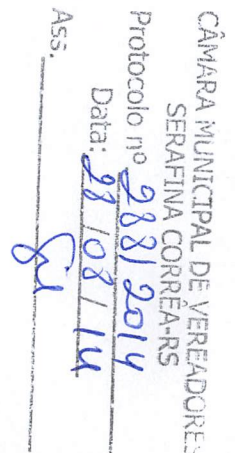 CÂMARA MUNICIPAL DE VEREADORES
SERAFINA CORRÊA-RS
Protocolo nº 288/2014
Data: 28/08/14
Ass.